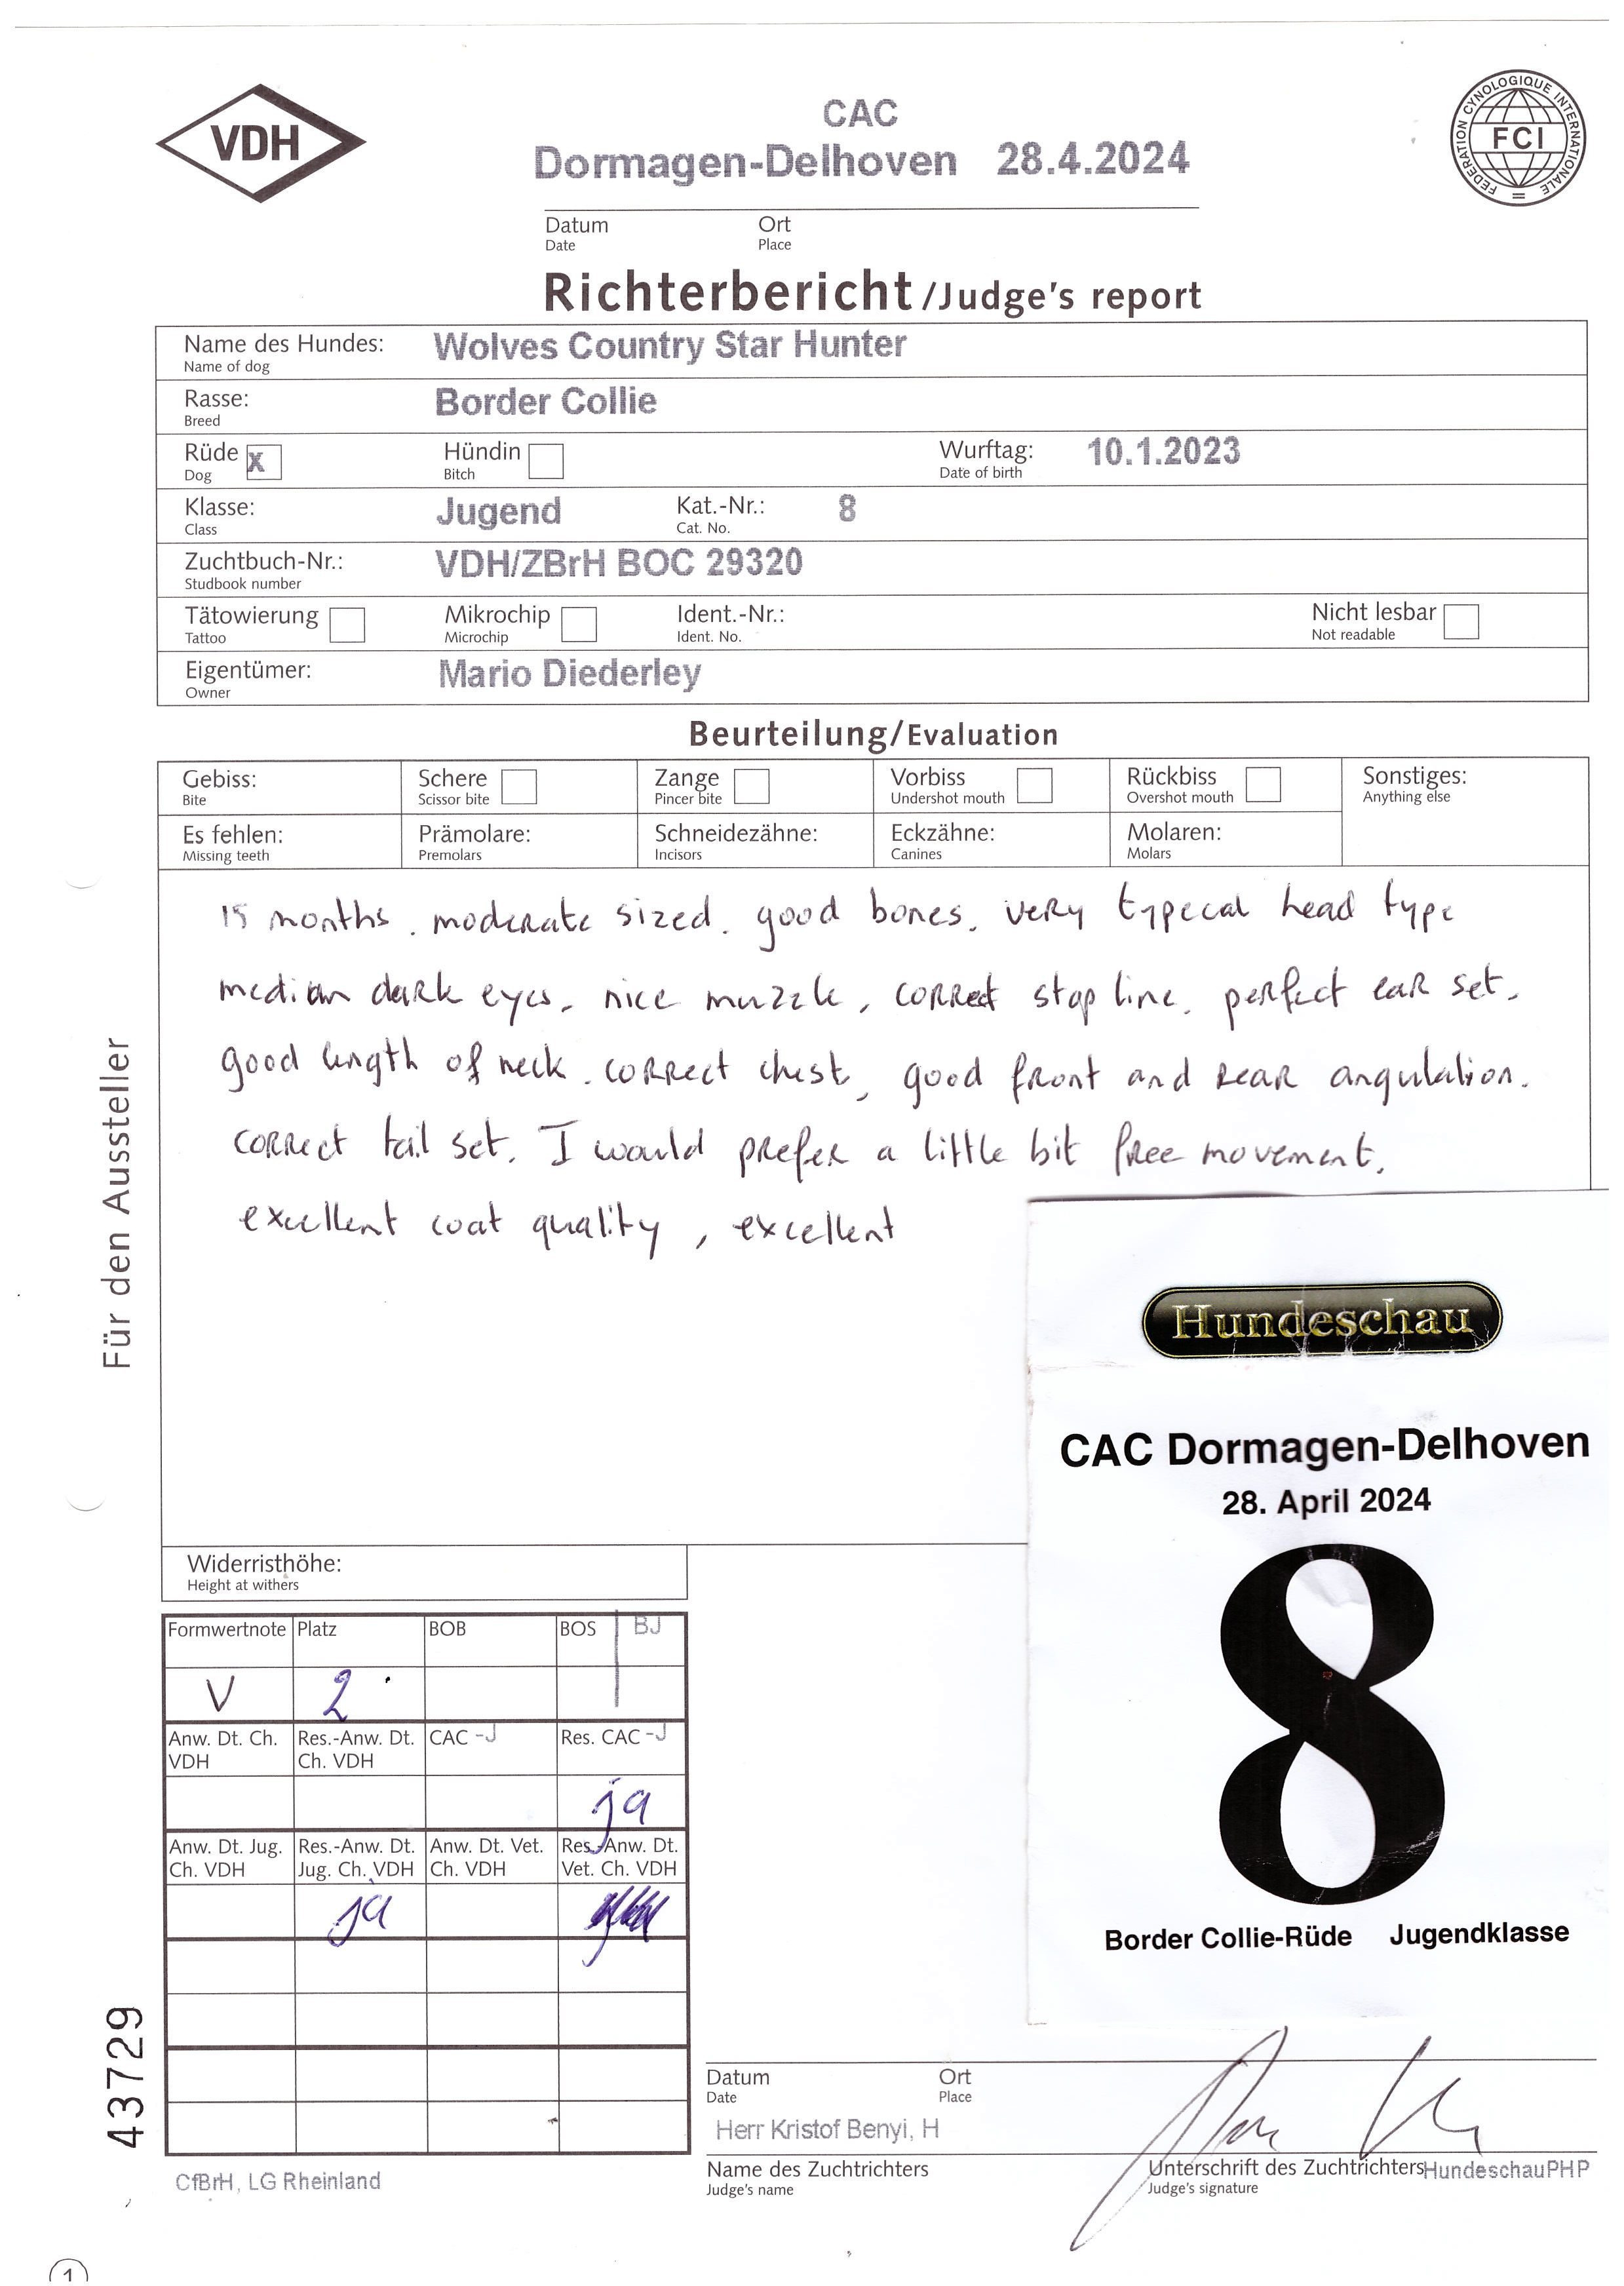 VDH
CAC
Dormagen-Delhoven 28.4.2024
FEDERATION CYNOLOGIQUE INTERNATIONALE
FCI
Datum Ort
Date Place
Richterbericht/Judge's report
Name des Hundes: Wolves Country Star Hunter
Name of dog
Rasse: Border Collie
Breed
Rüde x Hündin Wurftag: 10.1.2023
Dog Bitch Date of birth
Klasse: Jugend Kat.-Nr.: 8
Class Cat. No.
Zuchtbuch-Nr.: VDH/ZBrH BOC 29320
Studbook number
Tätowierung Mikrochip Ident.-Nr.: Nicht lesbar
Tattoo Microchip Ident. No. Not readable
Eigentümer: Mario Diederley
Owner
Beurteilung/Evaluation
Gebiss: Schere Zange Vorbiss Rückbiss Sonstiges:
Bite Scissor bite Pincer bite Undershot mouth Overshot mouth Anything else
Es fehlen: Prämolare: Schneidezähne: Eckzähne: Molaren:
Missing teeth Premolars Incisors Canines Molars
15 months. moderate sized. good bones. very typecal head type
median dark eyes. nice muzzle, correct stop line. perfect ear set.
good length of neck. correct chest, good front and rear angulation.
correct tail set. I would prefer a little bit free movement.
excellent coat quality, excellent
Für den Aussteller
Hundeschau
CAC Dormagen-Delhoven
28. April 2024
8
Border Collie-Rüde Jugendklasse
Widerristhöhe:
Height at withers
Formwertnote Platz BOB BOS BJ
V 2
Anw. Dt. Ch. Res.-Anw. Dt. CAC -J Res. CAC -J
VDH Ch. VDH
ja
Anw. Dt. Jug. Res.-Anw. Dt. Anw. Dt. Vet. Res.-Anw. Dt.
Ch. VDH Jug. Ch. VDH Ch. VDH Vet. Ch. VDH
ja
43729
Datum Ort
Date Place
Herr Kristof Benyi, H
Name des Zuchtrichters Unterschrift des Zuchtrichters HundeschauPHP
Judge's name Judge's signature
CfBrH, LG Rheinland
1